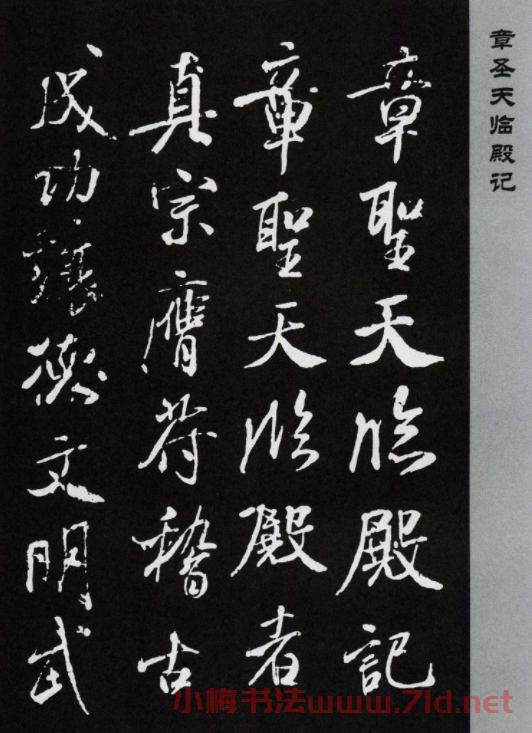 章圣天临殿记
章聖天臨殿記
章聖天臨殿者
真宗膺符稽古
成功讓德文明武
小梅书法www.7ld.net